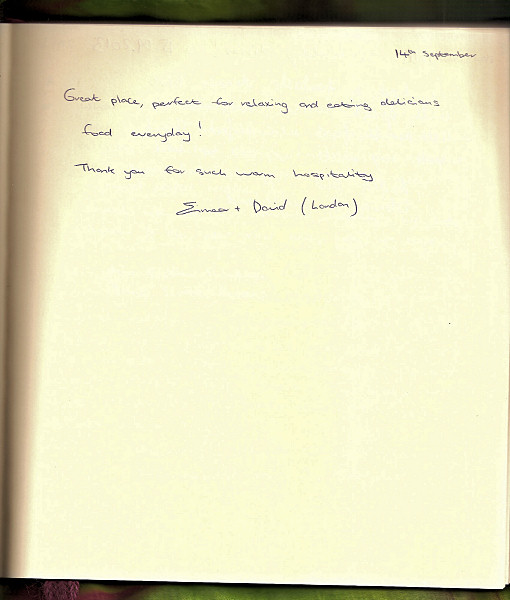 14th September
Great place, perfect for relaxing and eating delicious
food everyday!
Thank you for such warm hospitality
+ David (London)